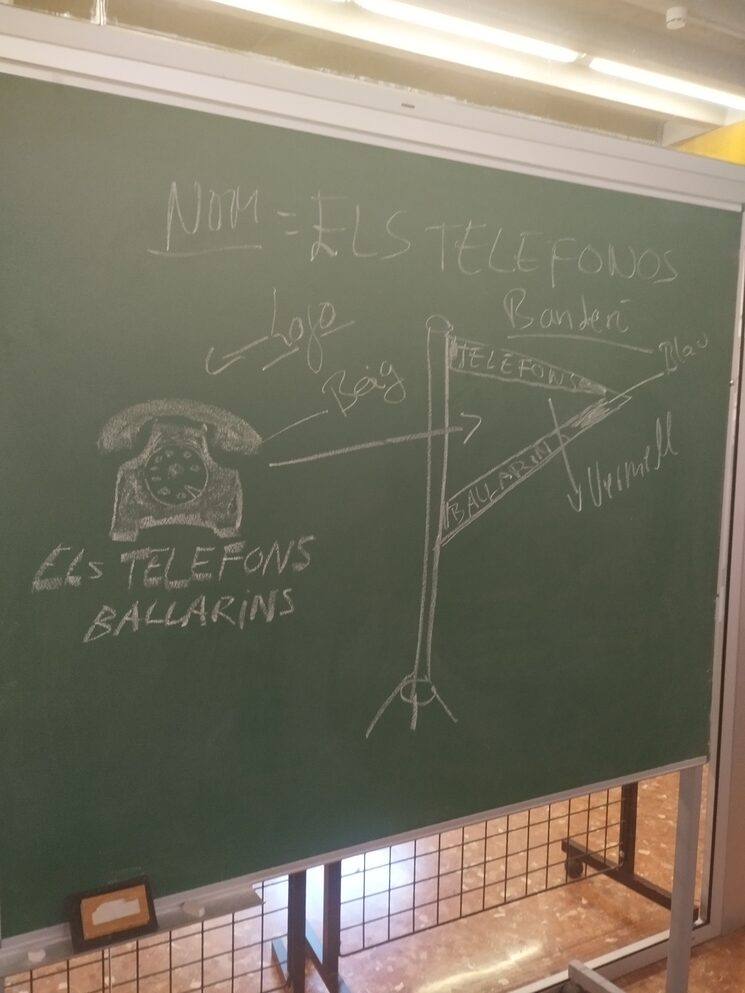 NOM = ELS TELEFONOS
Logo
Banderí
TELEFONS
Blau
Beig
BALLARINS
Vermell
ELS TELEFONS
BALLARINS